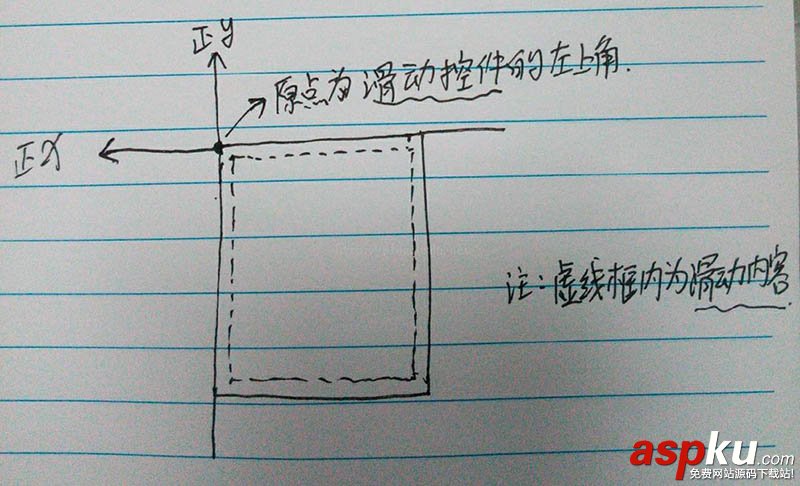 正y
原点为滑动控件的左上角.
正x
注:虚线框内为滑动内容
aspku.com
免费网站源码下载站!